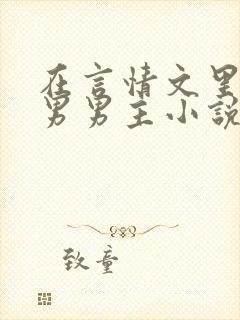 在言情文里
男男主小説
致童